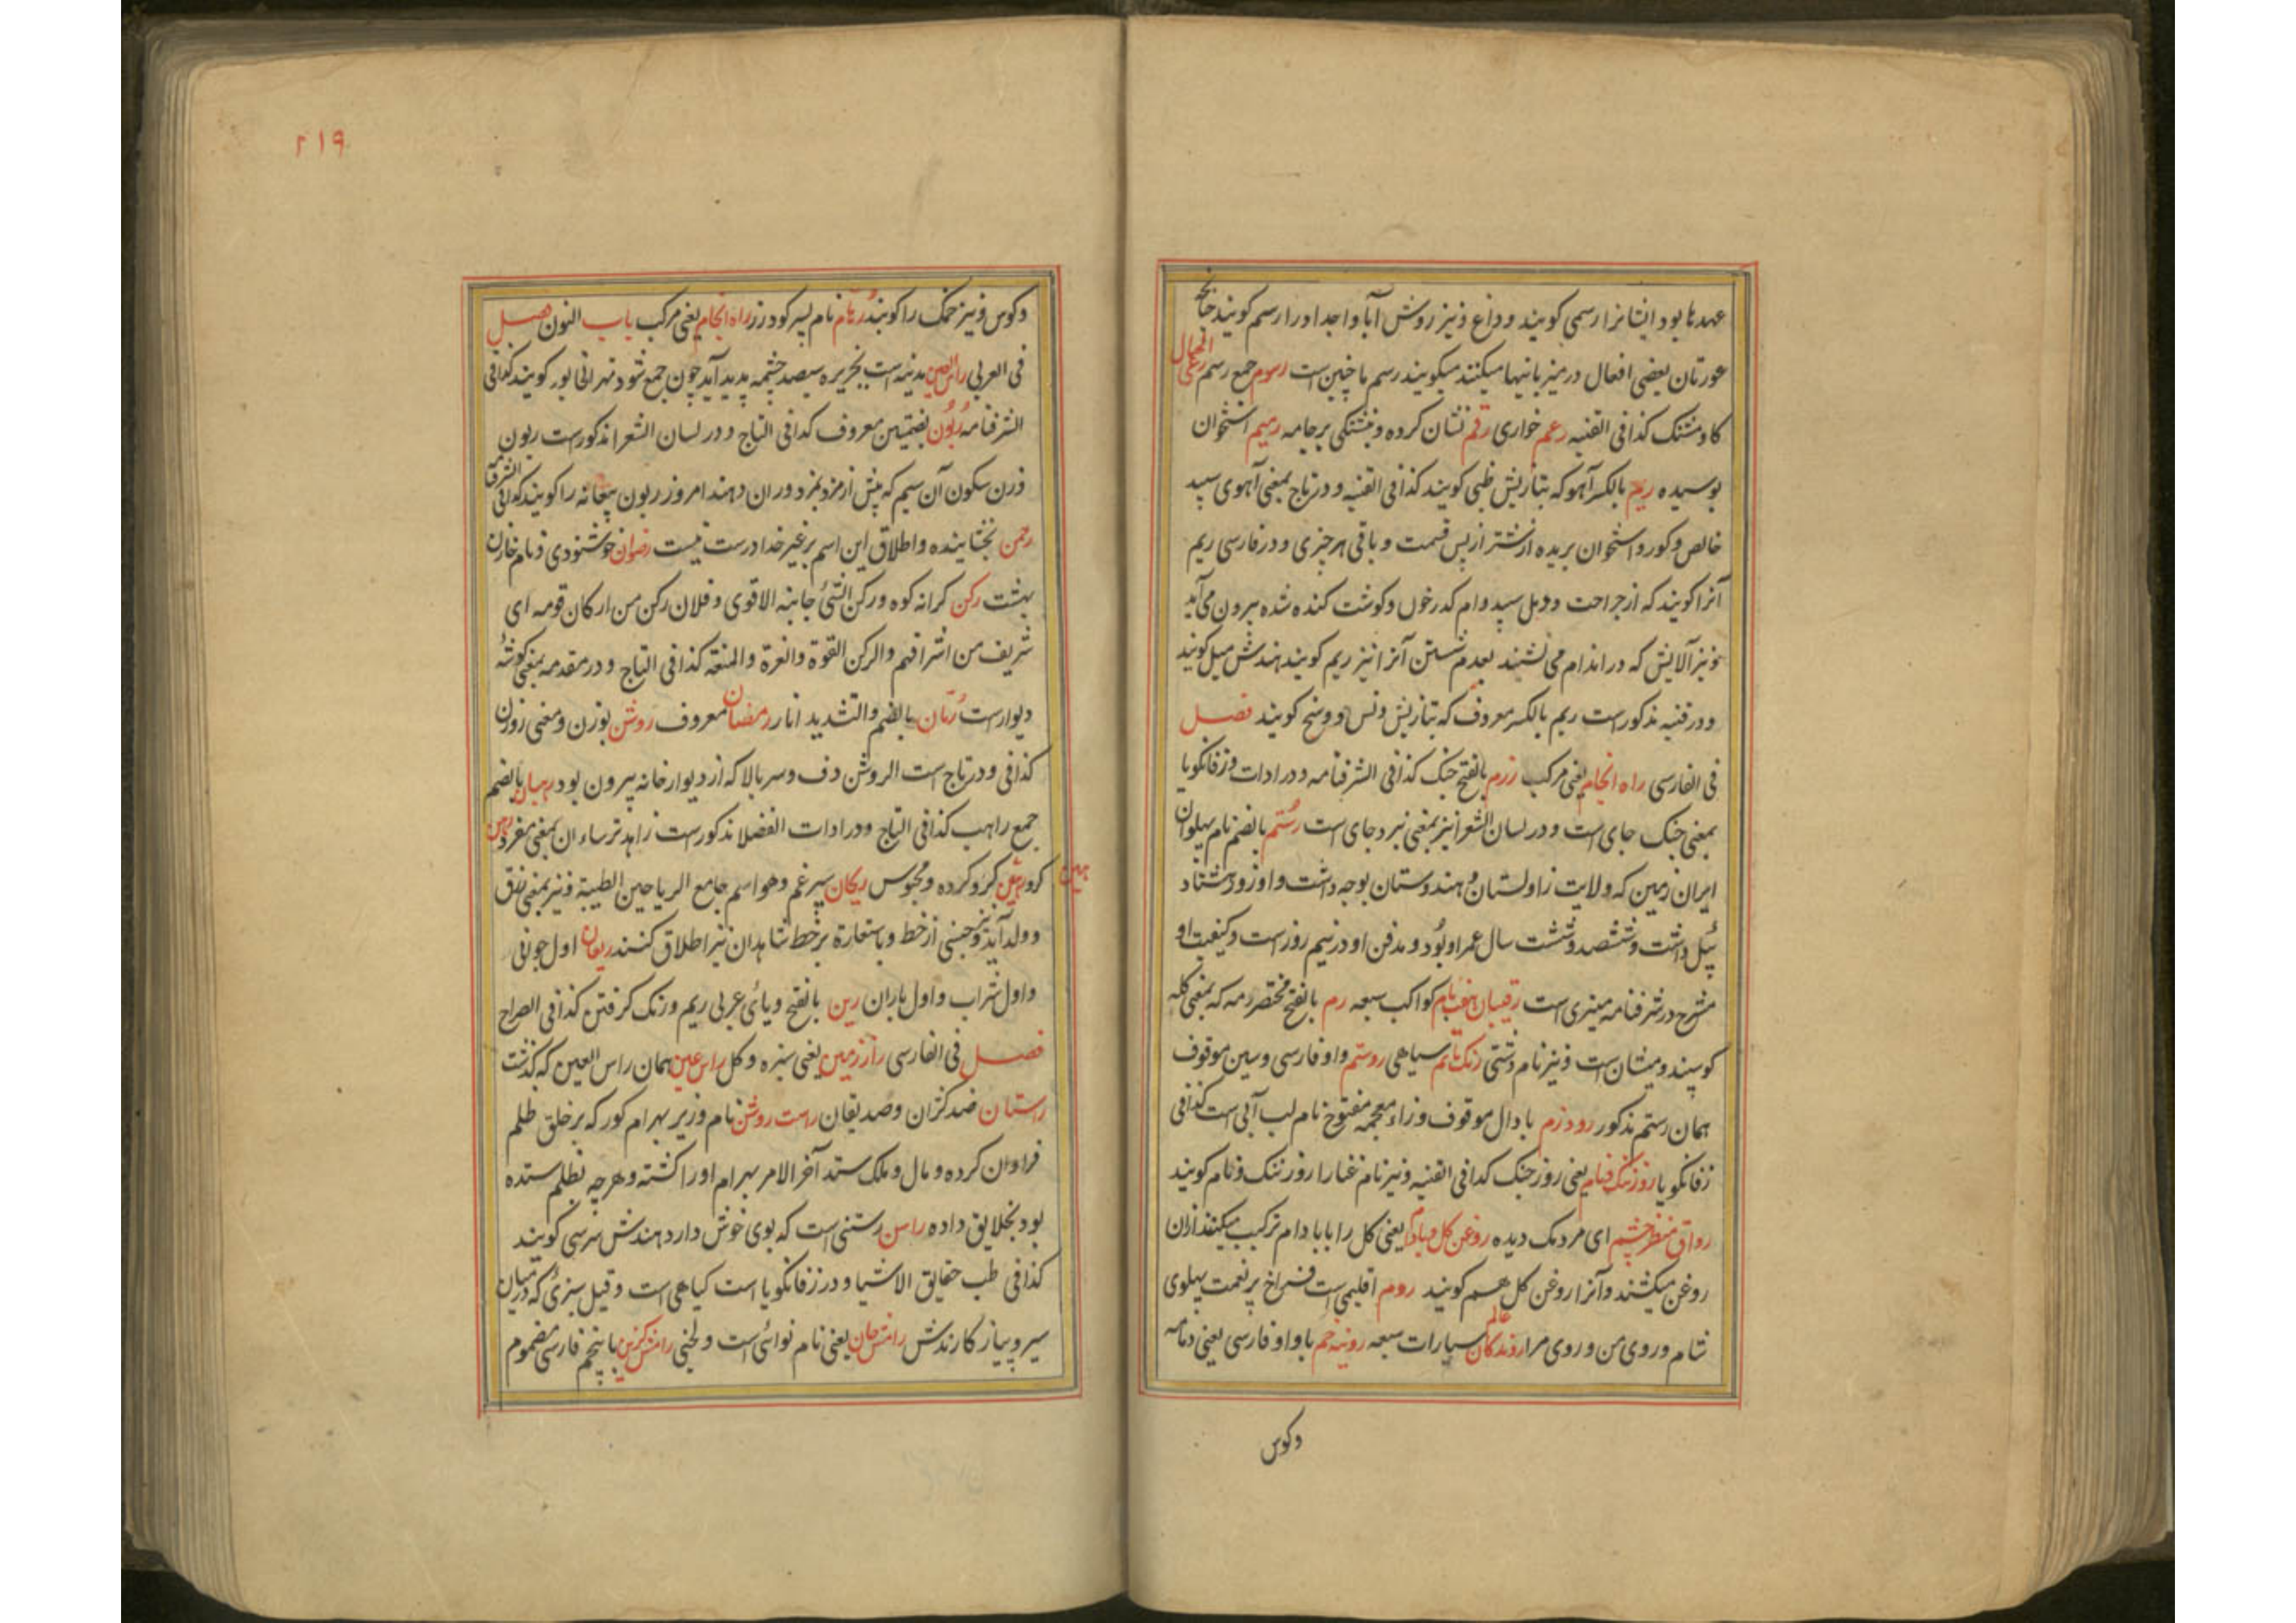 عهدها بود ایشانرا رسمی کویند وداغ ونیز روش آبا و اجداد را رسم کویند چنانچه
عورتان بعضی افعال در میزبانیها میکنند میکویند رسم ما چنین است رسوم جمع رسم رعی الحمال
کاو مشنک کذا فی القنیه رغم خواری رقم نشان کرده ونبشتکی بر جامه رمیم استخوان
بوسیده ریم بالکسر آهو که بتازیش ظبی کویند کذا فی القنیه و در تاج بمعنی آهوی سپید
خالص وکور و استخوان بریده از شتر از پس قسمت و باقی هر چیزی و در فارسی ریم
آنرا کویند که از جراحت و دمل سپید وام کدر خون وکوشت کنده شده بیرون می آید
ونیز آلایش که در اندام می نشیند بعدم شستن آنرا نیز ریم کویند هندش میل کویند
ودر قنیه مذکورست ریم بالکسر معروف که بتازیش ونس و وسخ کویند فصل
فی الفارسی راه انجام یعنی مرکب رزم بالفتح جنک کذا فی الشرفنامه ودر ادات و زفانکویا
بمعنی جنک جای است ودر لسان الشعرا نیز بمعنی نبرد جای است رستم بالضم نام پهلوان
ایران زمین که ولایت زاولستان و هندوستان بوجه داشت واو زور هشتاد
پیل داشت وششصد وشست سال عمر او بود ومدفن او در نیم روز است وکیفیت او
مشرح در شرفنامه منیری است رقیبان هفت بام کواکب سبعه رم بالفتح مختصر رمه که بمعنی کله
کوسپند ومیشان است ونیز نام دشتی رنک تام سیاهی روستم واو فارسی وسین موقوف
همان رستم مذکور رودزم با دال موقوف وزاء معجمه مفتوح نام لب آبی است کذا فی
زفانکویا روز ننک ونام یعنی روز جنک کذا فی القنیه ونیز نام غنا را روز ننک ونام کویند
رواق منظر چشم ای مردمک دیده روغن کل وبادام یعنی کل را با بادام ترکیب میکنند از ان
روغن میکشند وآنرا روغن کل هم کویند روم اقلیمی است فراخ پر نعمت پهلوی
شام وروی من وروی مرا روندکان عالم سیارات سبعه روئینه خم با واو فارسی یعنی دمامه
وکوس
۲۱۹
وکوس ونیز خمک را کویند رهام نام پسر کودرز راه انجام یعنی مرکب باب النون فصل
فی العربی راس العین مدینه است بجزیره سیصد چشمه پدید آید چون جمع شود نهرانی بور کویند کذا فی
الشرفنامه ربون بضمتین معروف کذا فی التاج ودر لسان الشعرا مذکورست ربون
وزن سکون آن سیم که پیش از مزد بمزدوران دهند امروز ربون بیعانه را کویند کذا فی الشرفنامه
رحمن بخشاینده واطلاق این اسم بر غیر خدا درست نیست رضوان خوشنودی ونام خازن
بهشت رکن کرانه کوه ورکن الشئ جانبه الاقوی وفلان رکن من ارکان قومه ای
شریف من اشرافهم والرکن القوة والعزة والمنعة کذا فی التاج ودر مقدمه بمعنی کوشه
دیوارست رمان بالضم والتشدید انار رمضان معروف روشن بوزن ومعنی روزن
کذا فی ودر تاج است الروشن دف وسر بالا که از دیوار خانه بیرون بود رهبان بالضم
جمع راهب کذا فی التاج ودر ادات الفضلا مذکورست زاهد ترساء ان بمعنی مفرد رهن
کرو رهین کرو کرده ومحبوس ریحان سپرغم وهو اسم جامع الریاحین الطیبة ونیز بمعنی رزق
وولد آید ونیز جنسی از خط و باستعارة بر خط شاهدان نیز اطلاق کنند ریعان اول جوانی
واول شراب واول باران رین بالفتح ویائ عربی ریم وزنک کرفتن کذا فی الصراح
فصل فی الفارسی راز زمین یعنی سبزه وکل راس عین همان راس العین که کذشت
راستان ضد کژان وصدیقان راست روشن نام وزیر بهرام کور که بر خلق ظلم
فراوان کرده ومال وملک ستد آخر الامر بهرام او را کشته وهر چه بظلم ستده
بود بخلایق داده راسن رستنی است که بوی خوش دارد هندش سرسی کویند
کذا فی طب حقایق الاشیا ودر زفانکویا است کیاهی است وقیل سبزئ که در میان
سیر وپیاز کارندش رامش جان یعنی نام نوائی است ولحنی رامش کزین با پنجم فارسی مضموم
رهین